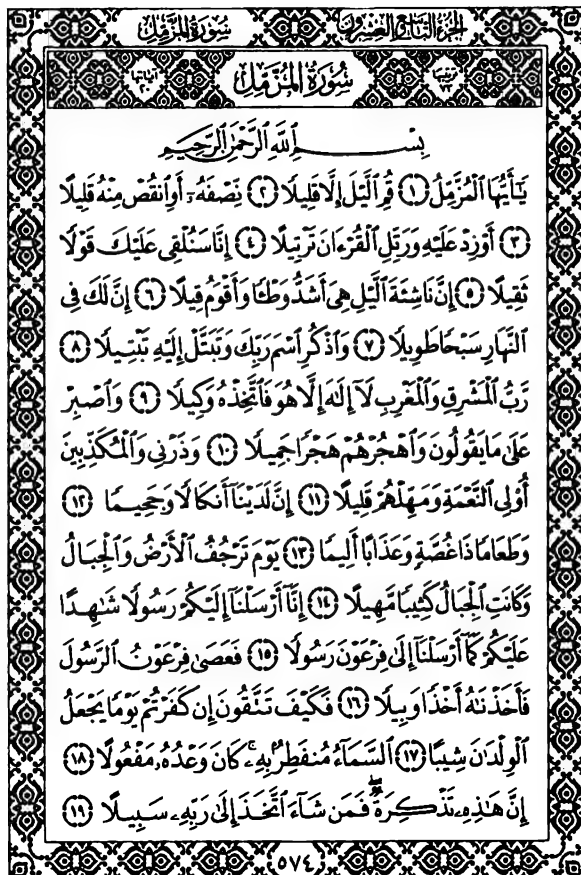 الجزء التاسع والعشرون سورة المزمل
ترتيبها ٧٣ سُورَةُ المُزَّمِّلِ آياتها ٢٠
بِسْمِ ٱللَّهِ ٱلرَّحْمَٰنِ ٱلرَّحِيمِ
يَٰٓأَيُّهَا ٱلْمُزَّمِّلُ ١ قُمِ ٱلَّيْلَ إِلَّا قَلِيلًا ٢ نِّصْفَهُۥٓ أَوِ ٱنقُصْ مِنْهُ قَلِيلًا
٣ أَوْ زِدْ عَلَيْهِ وَرَتِّلِ ٱلْقُرْءَانَ تَرْتِيلًا ٤ إِنَّا سَنُلْقِى عَلَيْكَ قَوْلًا
ثَقِيلًا ٥ إِنَّ نَاشِئَةَ ٱلَّيْلِ هِىَ أَشَدُّ وَطْـًٔا وَأَقْوَمُ قِيلًا ٦ إِنَّ لَكَ فِى
ٱلنَّهَارِ سَبْحًا طَوِيلًا ٧ وَٱذْكُرِ ٱسْمَ رَبِّكَ وَتَبَتَّلْ إِلَيْهِ تَبْتِيلًا ٨
رَّبُّ ٱلْمَشْرِقِ وَٱلْمَغْرِبِ لَآ إِلَٰهَ إِلَّا هُوَ فَٱتَّخِذْهُ وَكِيلًا ٩ وَٱصْبِرْ
عَلَىٰ مَا يَقُولُونَ وَٱهْجُرْهُمْ هَجْرًا جَمِيلًا ١٠ وَذَرْنِى وَٱلْمُكَذِّبِينَ
أُو۟لِى ٱلنَّعْمَةِ وَمَهِّلْهُمْ قَلِيلًا ١١ إِنَّ لَدَيْنَآ أَنكَالًا وَجَحِيمًا ١٢
وَطَعَامًا ذَا غُصَّةٍ وَعَذَابًا أَلِيمًا ١٣ يَوْمَ تَرْجُفُ ٱلْأَرْضُ وَٱلْجِبَالُ
وَكَانَتِ ٱلْجِبَالُ كَثِيبًا مَّهِيلًا ١٤ إِنَّآ أَرْسَلْنَآ إِلَيْكُمْ رَسُولًا شَٰهِدًا
عَلَيْكُمْ كَمَآ أَرْسَلْنَآ إِلَىٰ فِرْعَوْنَ رَسُولًا ١٥ فَعَصَىٰ فِرْعَوْنُ ٱلرَّسُولَ
فَأَخَذْنَٰهُ أَخْذًا وَبِيلًا ١٦ فَكَيْفَ تَتَّقُونَ إِن كَفَرْتُمْ يَوْمًا يَجْعَلُ
ٱلْوِلْدَٰنَ شِيبًا ١٧ ٱلسَّمَآءُ مُنفَطِرٌۢ بِهِۦ ۚ كَانَ وَعْدُهُۥ مَفْعُولًا ١٨
إِنَّ هَٰذِهِۦ تَذْكِرَةٌ ۖ فَمَن شَآءَ ٱتَّخَذَ إِلَىٰ رَبِّهِۦ سَبِيلًا ١٩
٥٧٤